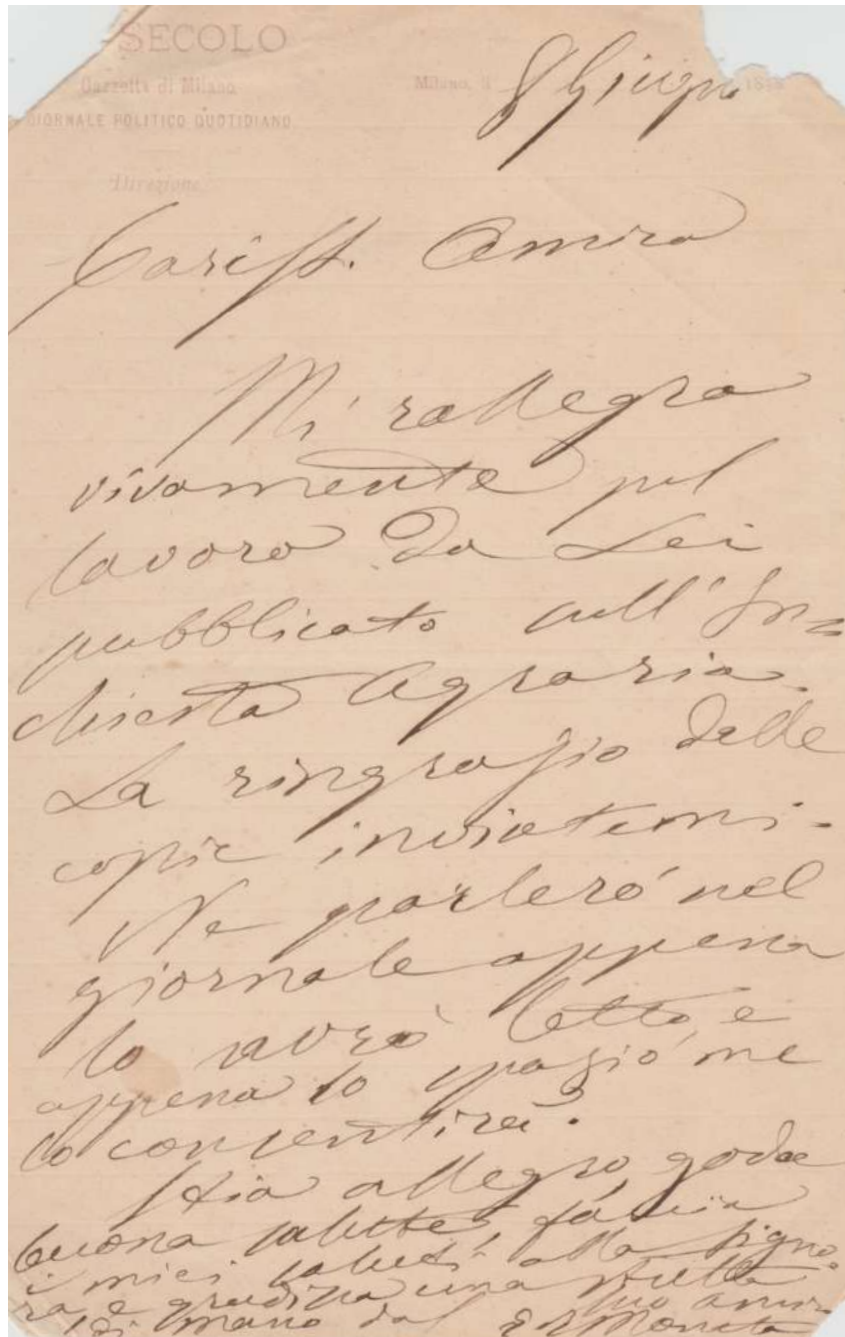 SECOLO
Gazzetta di Milano
GIORNALE POLITICO QUOTIDIANO
Direzione
Milano, il 8 Giugno 188
Cariss. Amico
Mi rallegro
vivamente pel
lavoro da Lei
pubblicato sull'In=
chiesta Agraria.
La ringrazio delle
copie inviatemi.
Ne parlerò nel
giornale appena
lo avrò letto, e
appena lo spazio me
lo consentirà.
Stia allegro, goda
buona salute, faccia
i miei saluti alla Signo=
ra e gradisca una stretta
di mano dal suo amico
E T Moneta